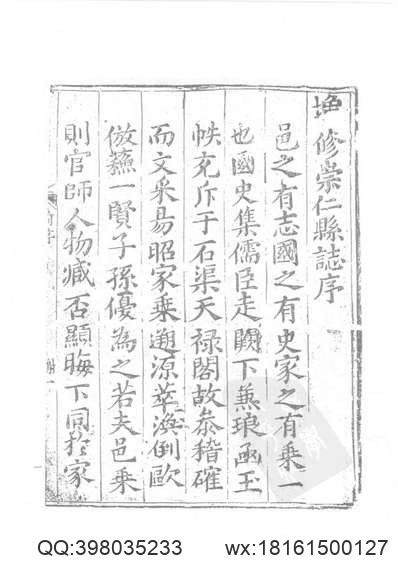 修崇仁縣誌序
邑之有志國之有史家之有乘一
也國史集儒臣走闕下蕉琅函玉
帙充斥于石渠天禄閣故叅稽確
而文采昜昭家乘遡源萃渙倒歐
倣蘇一賢子孫優為之若夫邑乗
則官師人物臧否顯晦下同扵家
QQ:398035233 wx:18161500127